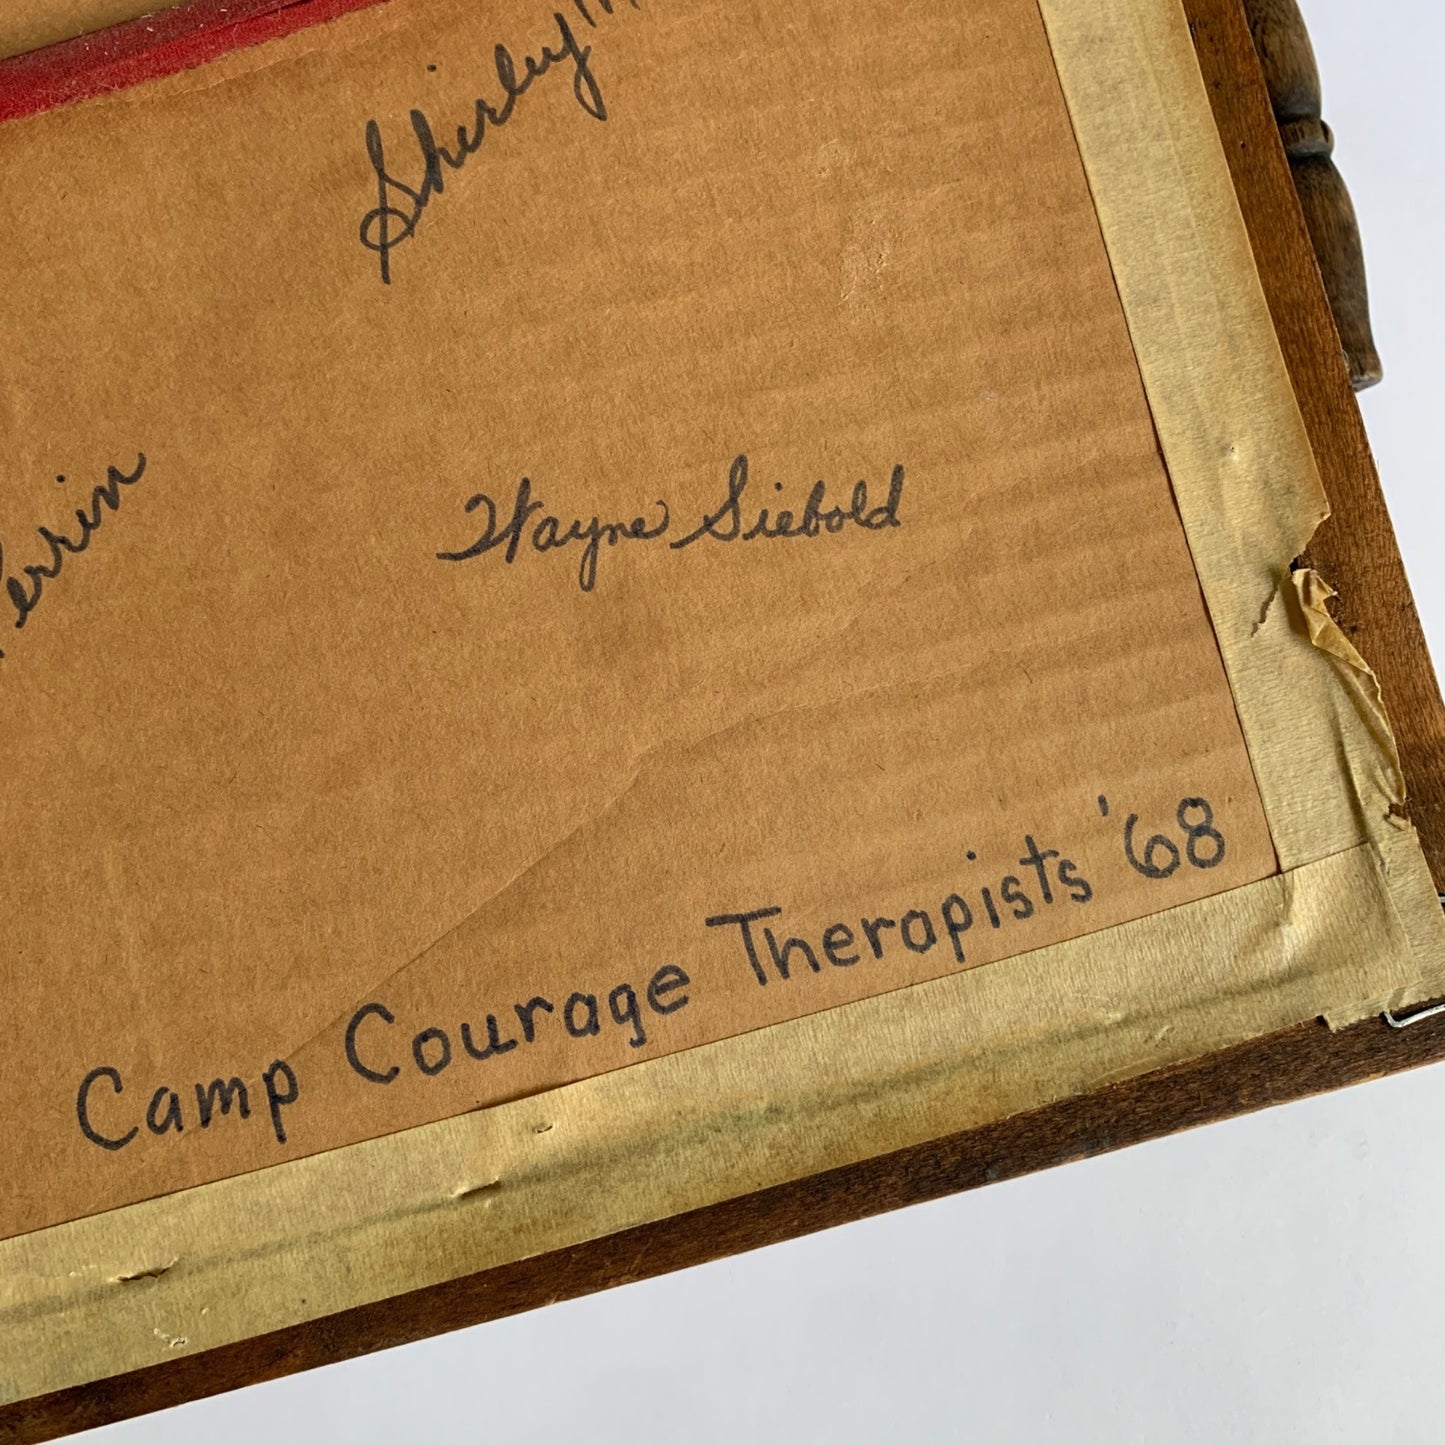 Shirley
Perrin
Wayne Siebold
Camp Courage Therapists '68